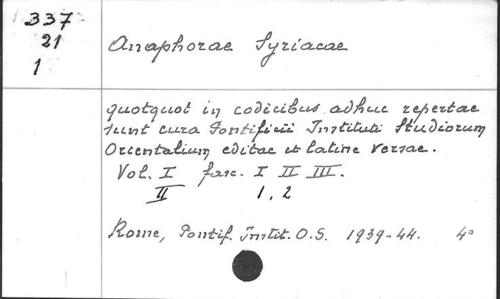 337
21
1
Anaphorae Syriacae
quotquot in codicibus adhuc repertae
sunt cura Pontificii Instituti Studiorum
Orientalium editae et latine versae.
Vol. I fasc. I II III.
II 1, 2
Rome, Pontif. Instit. O.S. 1939-44. 4°